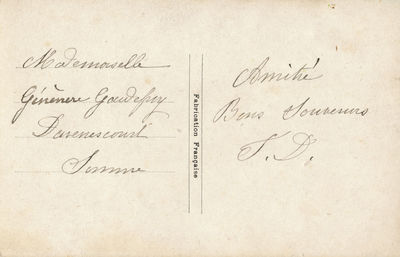 Mademoiselle
Génèvere Gaudefroy
Davenescourt
Somme
Fabrication Française
Amitié
Bons Souvenirs
T. D.